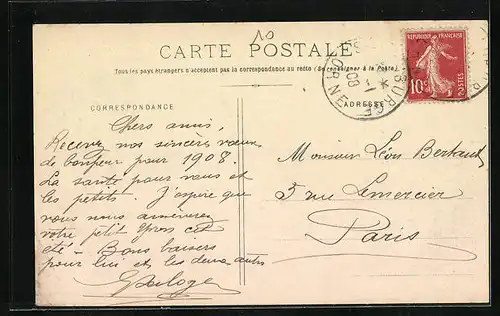 10
CARTE POSTALE
Tous les pays étrangers n'acceptent pas la correspondance au recto (Se renseigner à la Poste)
REPUBLIQUE FRANÇAISE
10c
POSTES
ORNE
08
CORRESPONDANCE
ADRESSE
Chers amis,
Recevez nos sincères vœux
de bonheur pour 1908.
La santé pour vous et
les petits. J'espère que
vous nous amènerez
votre petit Yvon cet
été — Bons baisers
pour lui et les deux autres
Monsieur Léon Bertaut
5 rue Lemercier
Paris